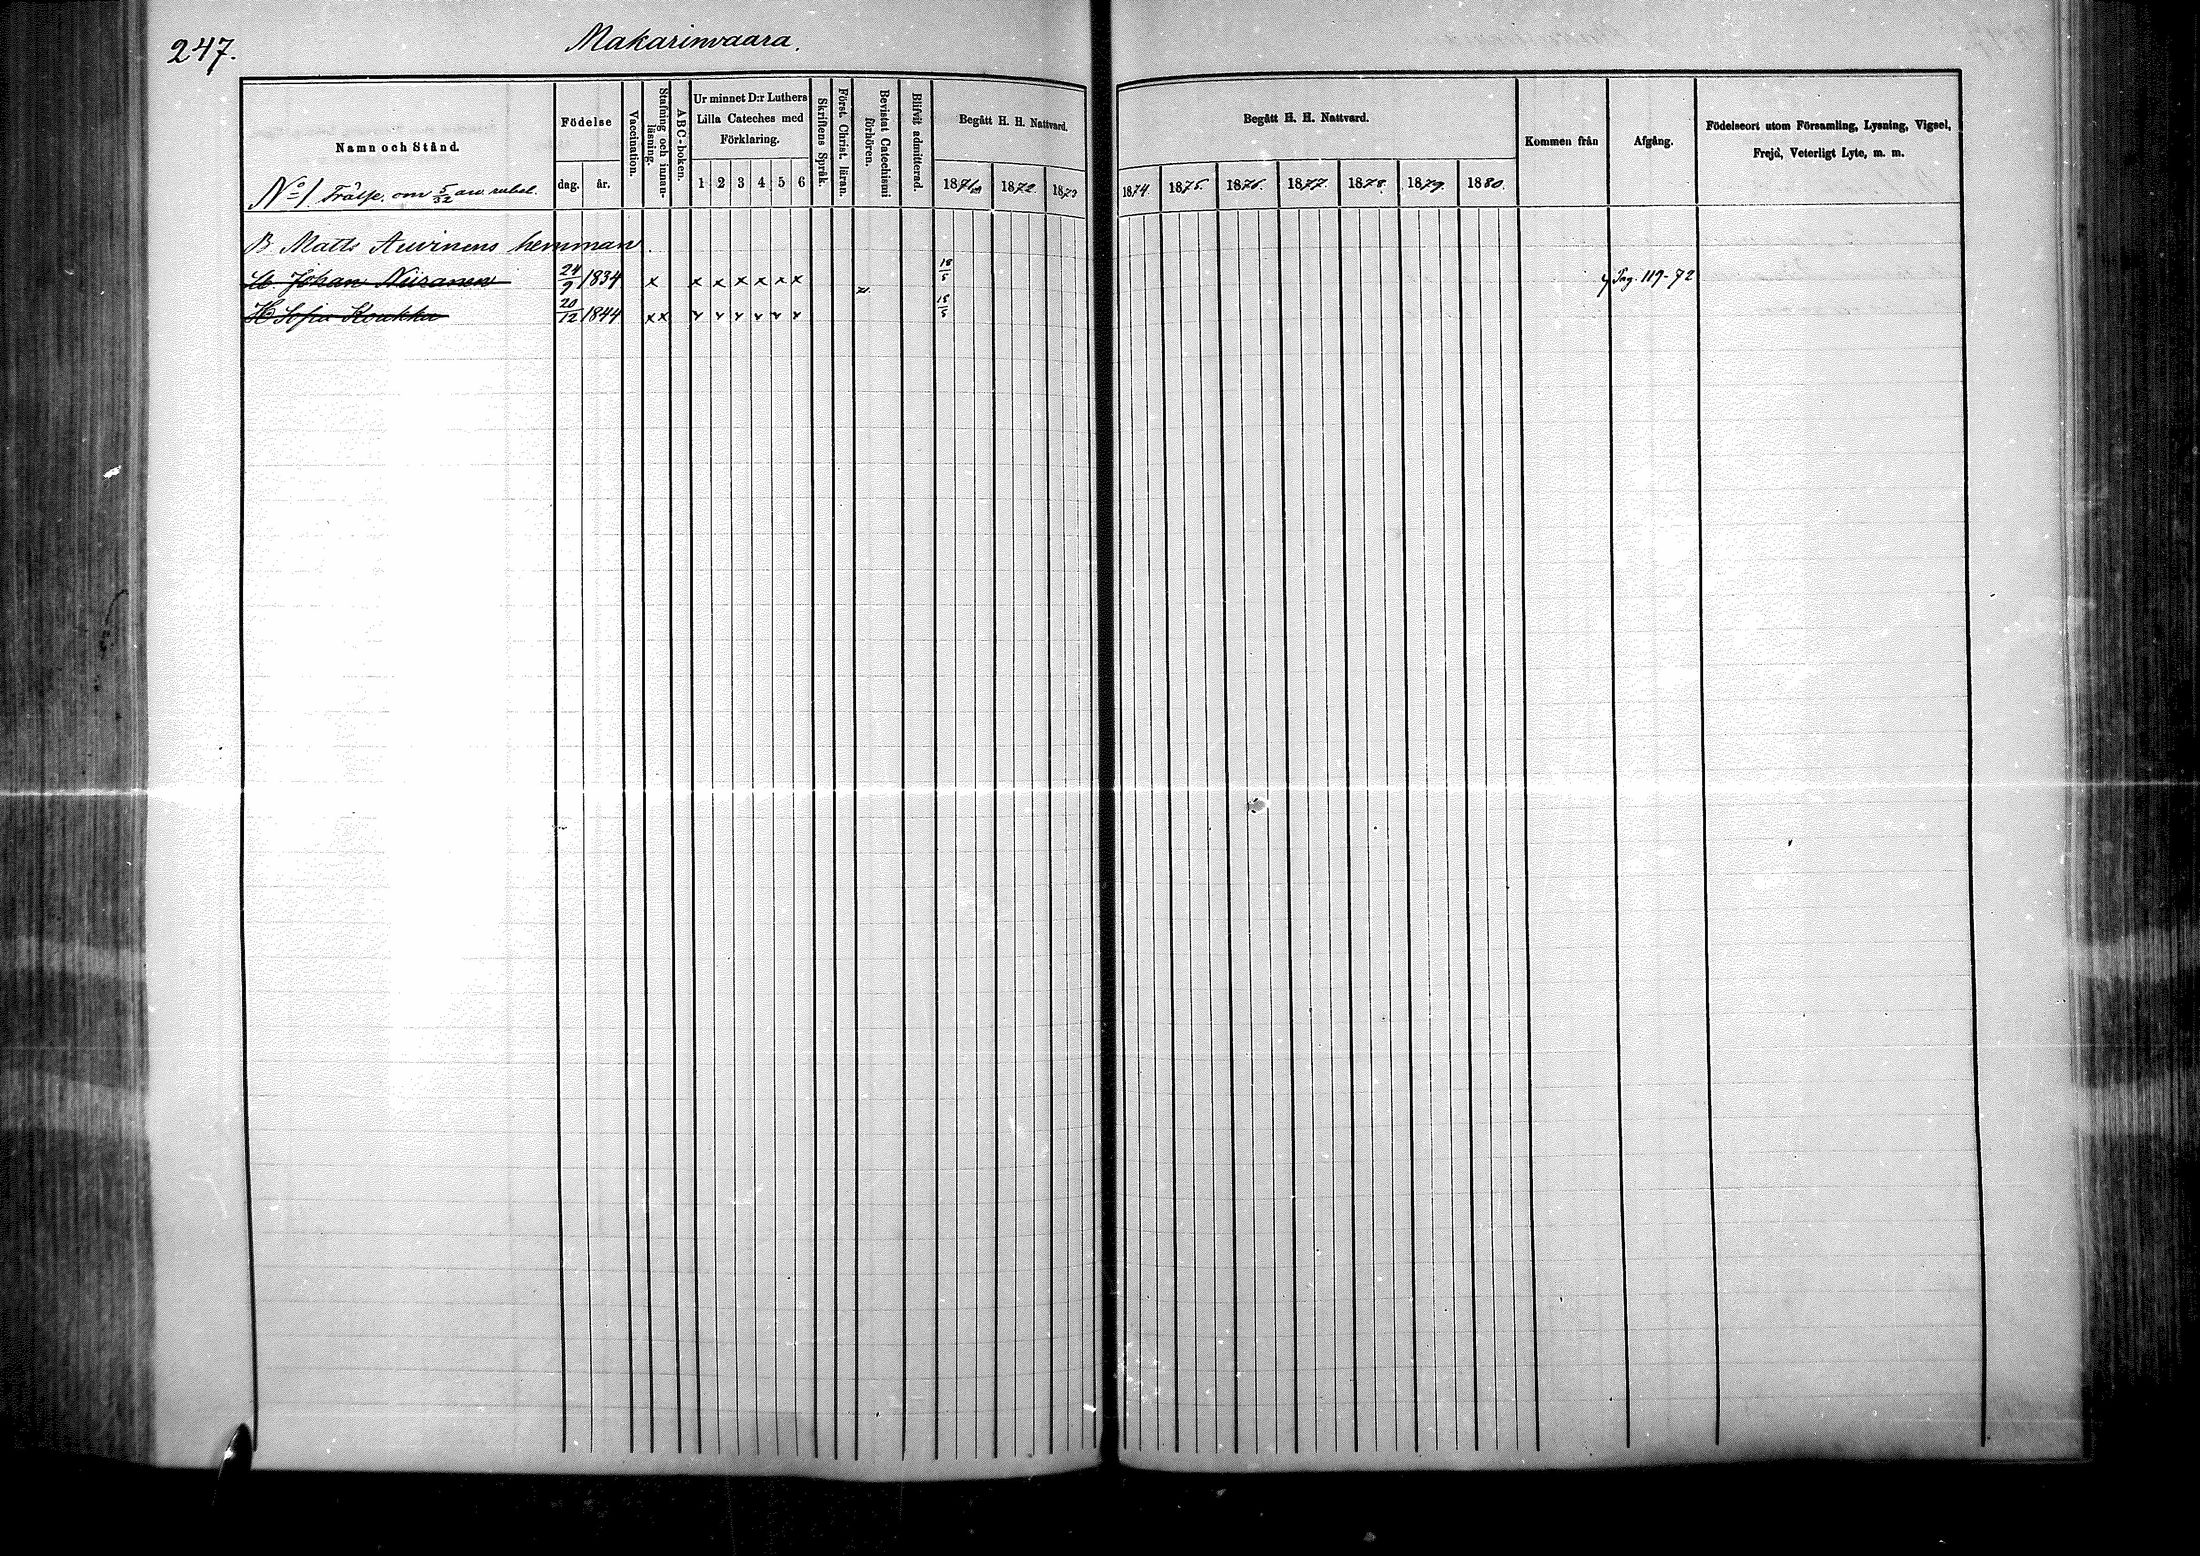 247.
Makarinvaara.
Namn och Stånd.
Födelse
dag.
år.
Vaccination.
Stafning och innan-läsning.
ABC-boken.
Ur minnet D:r Luthers
Lilla Cateches med
Förklaring.
1 2 3 4 5 6
Skriftens Språk.
Först. Christ. läran.
Bevistat Catechismi förhören.
Blifvit admitterad.
Begått H. H. Nattvard.
1871 1872 1873
Begått H. H. Nattvard.
1874. 1875. 1876. 1877. 1878. 1879. 1880.
Kommen från
Afgång.
Födelseort utom Församling, Lysning, Vigsel,
Frejd, Veterligt Lyte, m. m.
No 1 Frälse, om 5/32 arv. rubel.
B. Matts Auvinens hemman.
Johan Niiranen 24/9 1834 x x x x x x x 18/5 Pag. 119-72
H Sofia Koukku 20/12 1844 x x x x x x x x 18/5